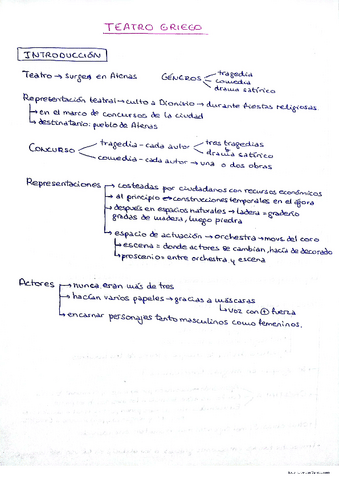 TEATRO GRIEGO
INTRODUCCIÓN
Teatro → surge en Atenas
GÉNEROS
tragedia
comedia
drama satírico
Representación teatral → culto a Dionisio → durante fiestas religiosas
→ en el marco de concursos de la ciudad
→ destinatario: pueblo de Atenas
CONCURSO
tragedia - cada autor
tres tragedias
drama satírico
comedia - cada autor → una o dos obras
Representaciones → costeadas por ciudadanos con recursos económicos
→ al principio → construcciones temporales en el ágora
→ después en espacios naturales → ladera = graderío
gradas de madera, luego piedra
→ espacio de actuación → orchestra → movs del coro
→ escena = donde actores se cambian, hacía de decorado
→ proscenio = entre orchestra y escena
Actores → nunca eran más de tres
→ hacían varios papeles → gracias a máscaras
↳ voz con + fuerza
→ encarnar personajes tanto masculinos como femeninos.